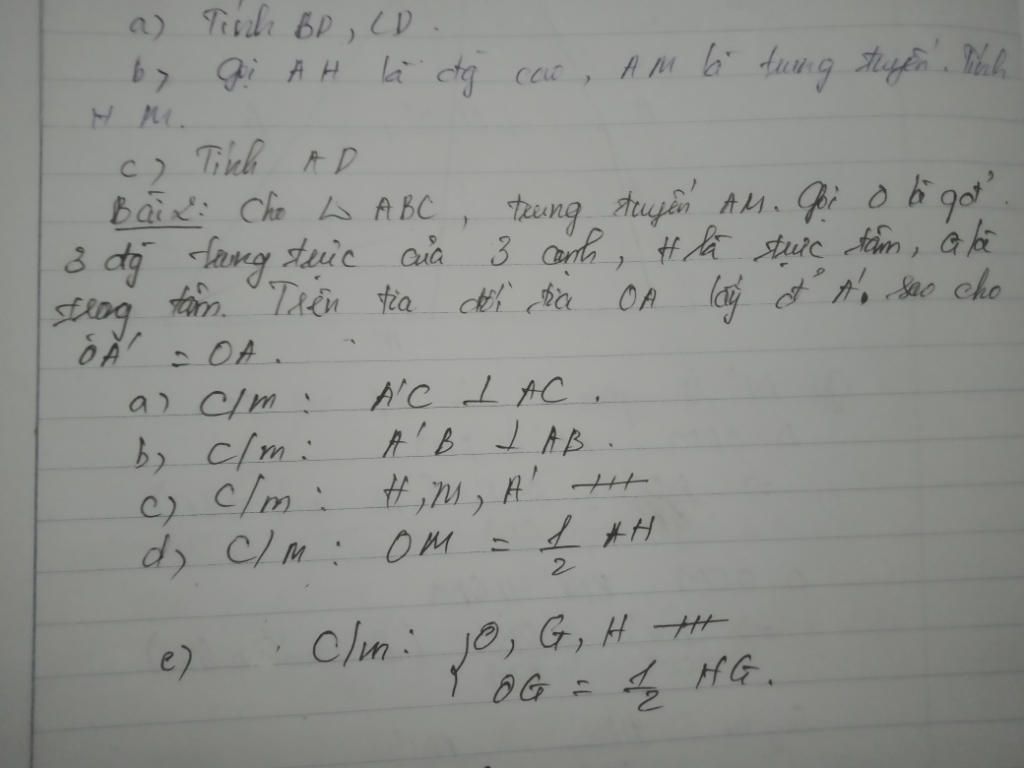 a) Tính BD, CD.
b) Gọi AH là đg cao, AM là trung tuyến. Tính
HM.
c) Tính AD
Bài 2: Cho △ ABC, trung tuyến AM. Gọi O là gđ'
3 đg trung trực của 3 cạnh, H là trực tâm, G là
trọng tâm. Trên tia đối tia OA lấy đ' A'. sao cho
OA' = OA.
a) C/m: A'C ⊥ AC.
b) C/m: A'B ⊥ AB.
c) C/m: H, M, A'
d) C/m: OM = 1/2 AH
e) C/m: { O, G, H
OG = 1/2 HG.